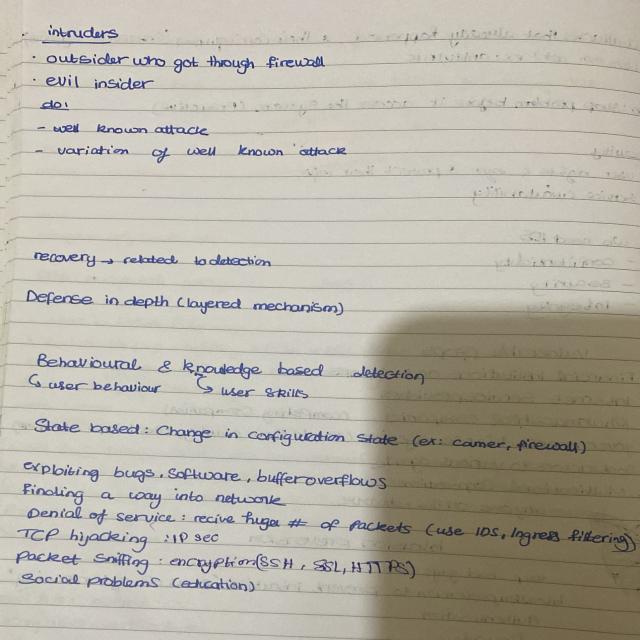 intruders
· outsider who got through firewall
· evil insider
do:
- well known attack
- variation of well known attack
recovery → related to detection
Defense in depth (layered mechanism)
Behavioural & knowledge based detection
↳ user behaviour ↳ user skills
State based: Change in configuration state (ex: camer, firewall)
exploiting bugs, software, buffer overflows
Finding a way into network
Denial of service: recive huge # of packets (use IDS, Ingress filtering)
TCP hijacking : IP sec
packet sniffing : encryption (SSH, SSL, HTTPS)
social problems (education)